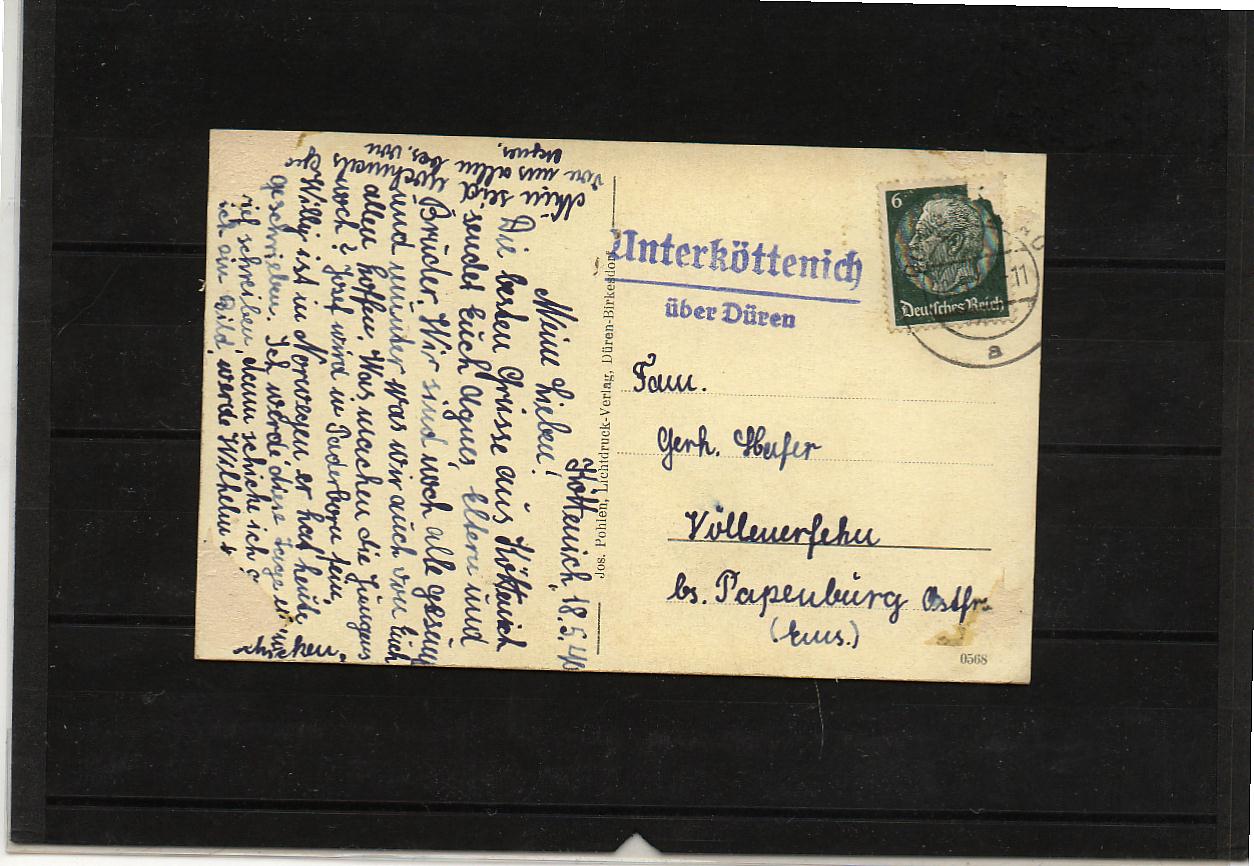 Köttenich, 18.5.40
Meine Lieben!
Die besten Grüsse aus Köttenich
sendet Euch Agnes, Eltern und
Brüder. Wir sind noch alle gesund
und munter was wir auch von Euch
allen hoffen. Was machen die Jungens
noch? Josef wird in Paderborn sein,
Willy ist in Norwegen er hat heute
geschrieben. Ich werde diese Tage
ich schreiben, dann schicke ich
ich ein Bild, werde Wilhelm
schicken.
Nun seid nochmals
von uns allen bes. von
Agnes.
Jos. Pohlen, Lichtdruck-Verlag, Düren-Birkesdorf
Unterköttenich
über Düren
6
Deutsches Reich
11
a
Fam.
Gerh. Hafer
Völlenerfehn
bs. Papenburg Ostfr.
(Ems.)
0568